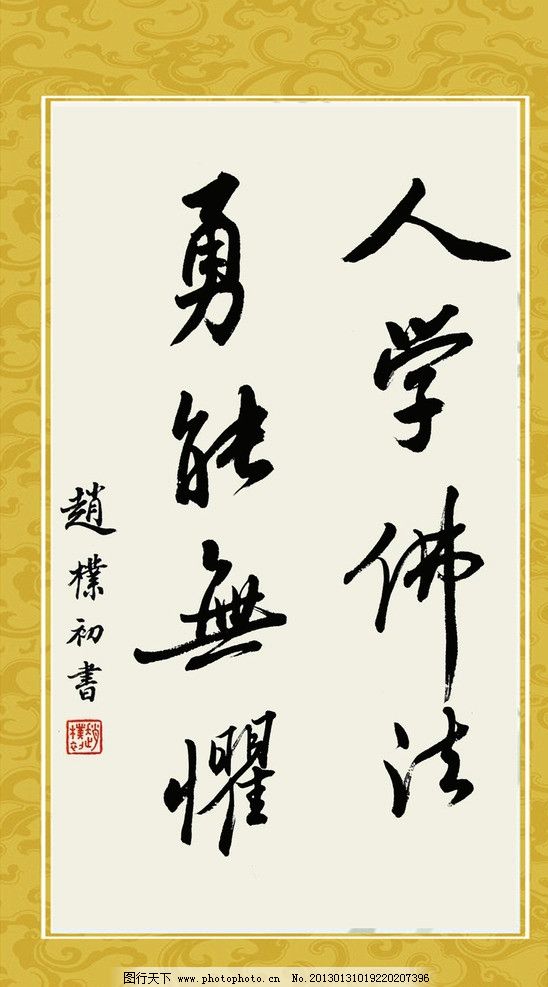 人学佛法
勇能無懼
趙樸初書
趙樸初
图行天下 www.photophoto.cn No.20130131019220207396